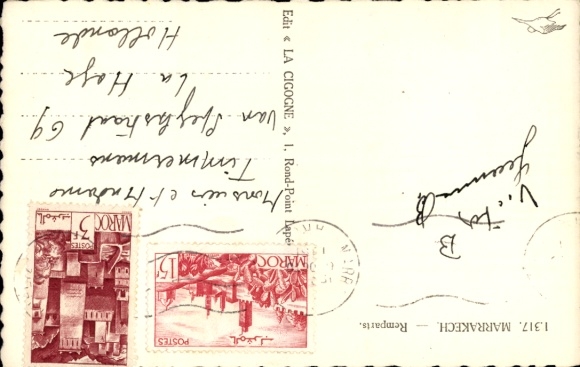 1.317. MARRAKECH. — Remparts.
Edit « LA CIGOGNE », 1, Rond-Point Lapé
MAROC
15F
POSTES
المغرب
MAROC
3F
POSTES
المغرب
Monsieur et Madame
Timmermans
van Speykstraat 69
La Haye
Hollande
B